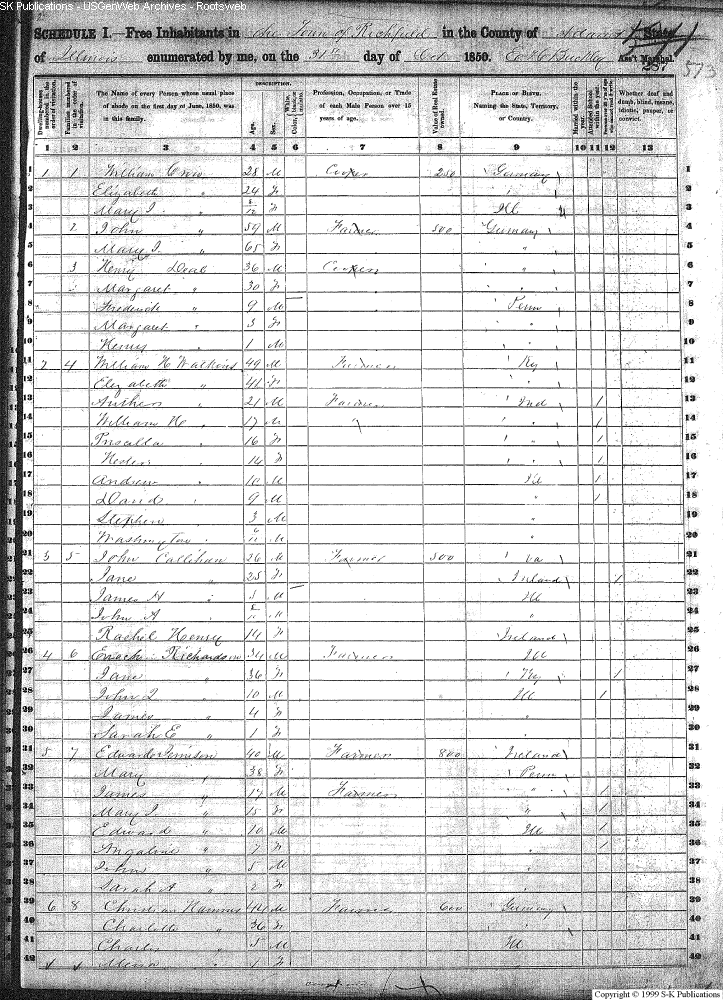 SK Publications - USGenWeb Archives - Rootsweb
SCHEDULE I.—Free Inhabitants in the Town of Richfield in the County of Adams State
of Illinois enumerated by me, on the 31st day of Oct 1850. Ass't Marshal.
573
Dwelling-houses numbered in the order of visitation.
Families numbered in the order of visitation.
The Name of every Person whose usual place of abode on the first day of June, 1850, was in this family.
DESCRIPTION.
Age.
Sex.
Profession, Occupation, or Trade of each Male Person over 15 years of age.
Value of Real Estate owned.
PLACE OF BIRTH. Naming the State, Territory, or Country.
Married within the year.
Attended School within the year.
Whether deaf and dumb, blind, insane, idiotic, pauper, or convict.
1 2 3 4 5 6 7 8 9 10 11 12 13
1 1 1 William 28 M Cooper 250 Germany 1
2 Elizabeth " 24 F " 2
3 Mary " F Ill 3
4 2 John " 59 M Farmer 500 Germany 4
5 Mary " 65 F " 5
6 3 Henry Deal 36 M Coopers " 6
7 Margaret " 30 F " 7
8 Frederick " 9 M Penn 8
9 Margaret " 3 F " 9
10 Henry " 1 M " 10
11 2 4 William H Watkins 49 M Farmer Ky 11
12 Elizabeth " 41 F " 12
13 " 21 M Farmer Ind 1 13
14 William H " 17 M " " 1 14
15 Priscilla " 16 F " 1 15
16 " 14 F " 1 16
17 Andrew " 10 M Ill 1 17
18 David " 9 M " 1 18
19 Stephen " 3 M " 19
20 Washington " M " 20
21 3 5 John Callihan 26 M Farmer 500 Va 21
22 Jane " 25 F Ireland 1 22
23 James H " 3 M Ill 23
24 John A " M " 24
25 Rachel Henry 14 F Ireland 25
26 4 6 Enoch Richardson 34 M Farmer Ill 26
27 Jane " 36 F Ky 1 27
28 John " 10 M Ill 1 28
29 James " 4 M " 29
30 Sarah E " 1 F " 30
31 5 7 Edward 40 M Farmer 800 Ireland 31
32 Mary " 38 F Penn 32
33 James " 17 M Farmer " 1 33
34 Mary " 15 F " 1 34
35 Edward " 10 M Ill 1 35
36 Angaline " 7 F " 1 36
37 John " 5 M " 37
38 Sarah A " 2 F " 38
39 6 8 Christian M Farmer 600 Germany 39
40 Charlotte " 36 F " 40
41 Charles " 5 M Ill 41
42 " 1 F " 42
Copyright © 1999 S-K Publications